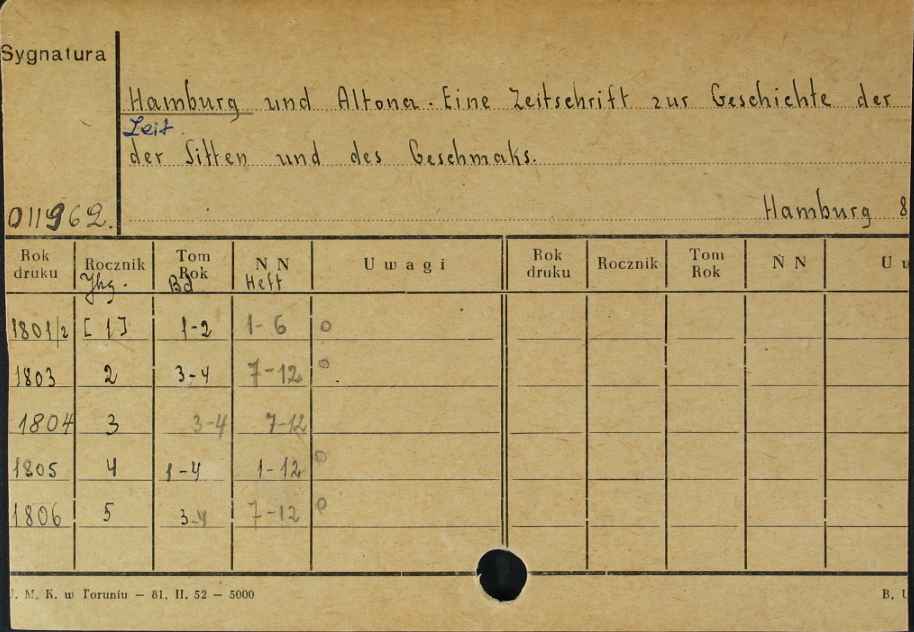 Sygnatura
Hamburg und Altona. Eine Zeitschrift zur Geschichte der
Zeit.
der Sitten und des Geschmaks.
011962.
Hamburg 8
Rok druku Rocznik Tom Rok N N Uwagi Rok druku Rocznik Tom Rok N N U
Jhg. Bd Heft
1801/2 [1] 1-2 1-6 o
1803 2 3-4 7-12 o
1804 3 3-4 7-12
1805 4 1-4 1-12 o
1806 5 3-4 7-12 o
M. K. w Toruniu — 81. II. 52 — 5000
B. U